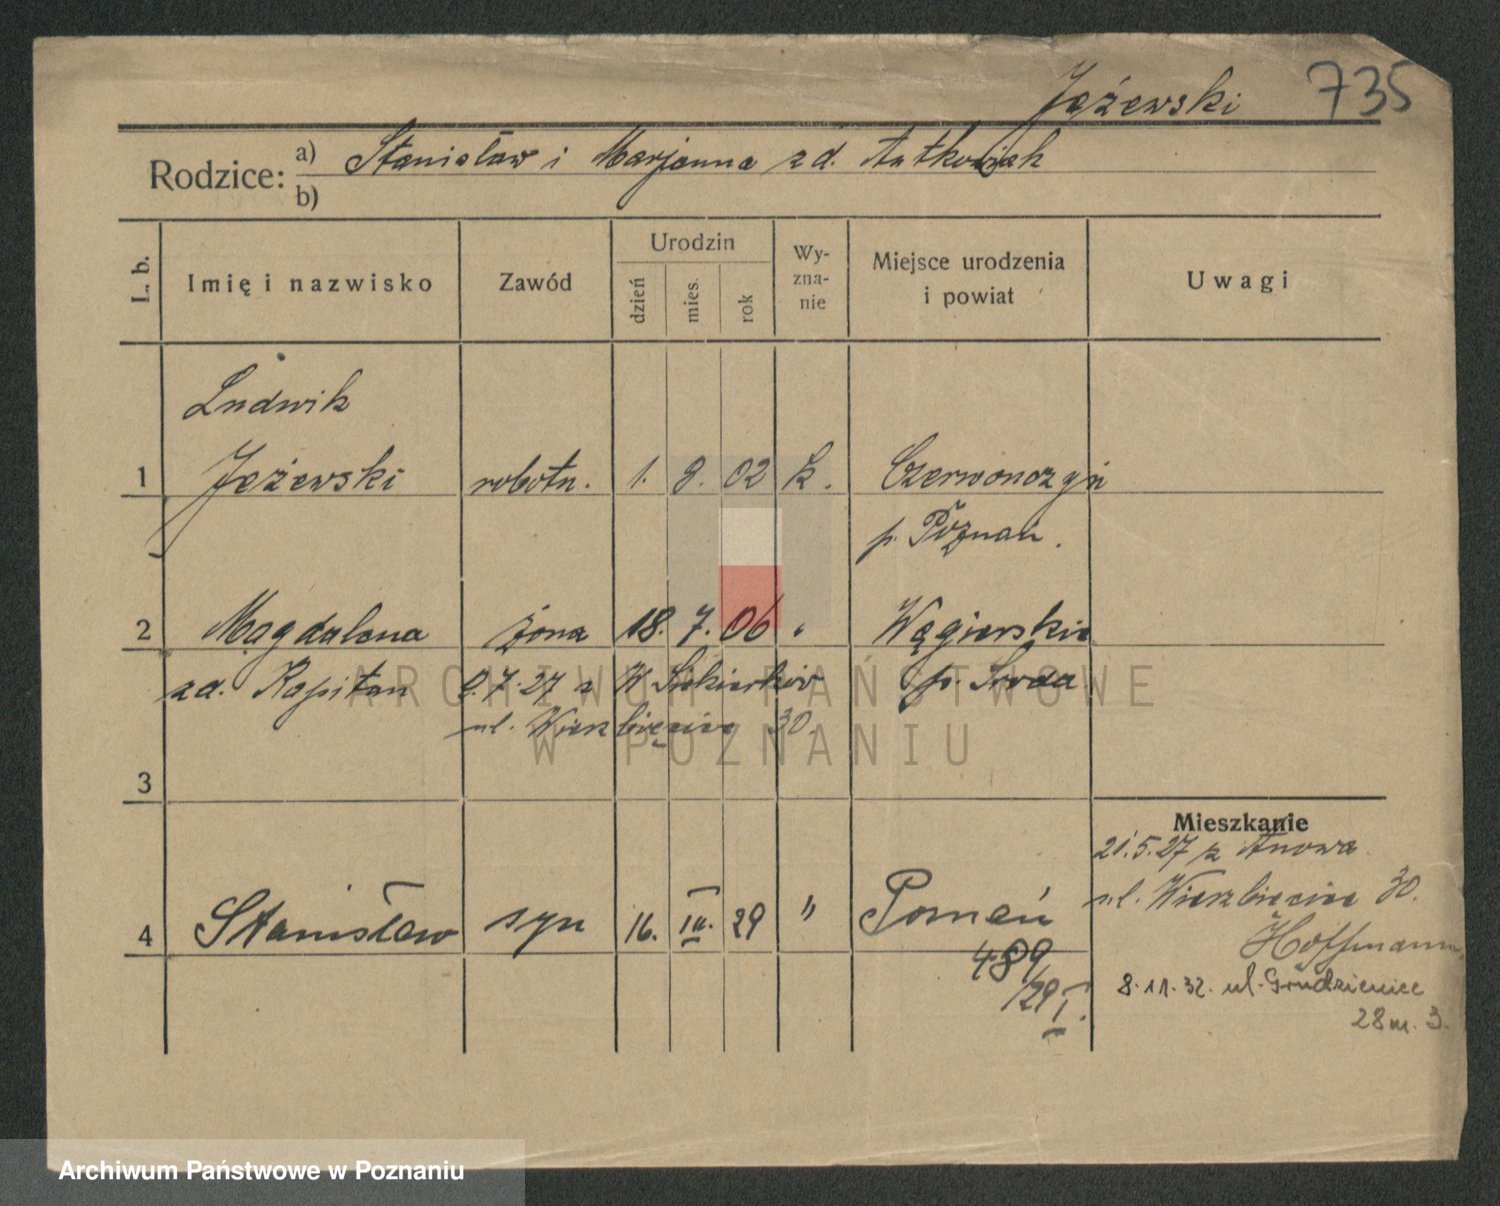 Jeżewski 735
Rodzice: a) Stanisław i Marjanna zd. Ratkowiak
b)
L. b. Imię i nazwisko Zawód Urodzin dzień mies. rok Wy-zna-nie Miejsce urodzenia i powiat Uwagi
Ludwik
1 Jeżewski robotn. 1. 8. 02 k. Czerwonczyn
p. Poznań.
2 Magdalena żona 18. 7. 06 " Węgierskie
zd. Kapitan 8.7.27 z W. Siekierków p. Środa
ul. Wierzbięcice 30.
3
Mieszkanie
21.5.27 z
ul. Wierzbięcice 30.
4 Stanisław syn 16. III. 29 " Poznań
Hoffmann
489
/29 I.
8.11.32. ul. Grudzieniec
28 m. 3.
ARCHIWUM PAŃSTWOWE
W POZNANIU
Archiwum Państwowe w Poznaniu